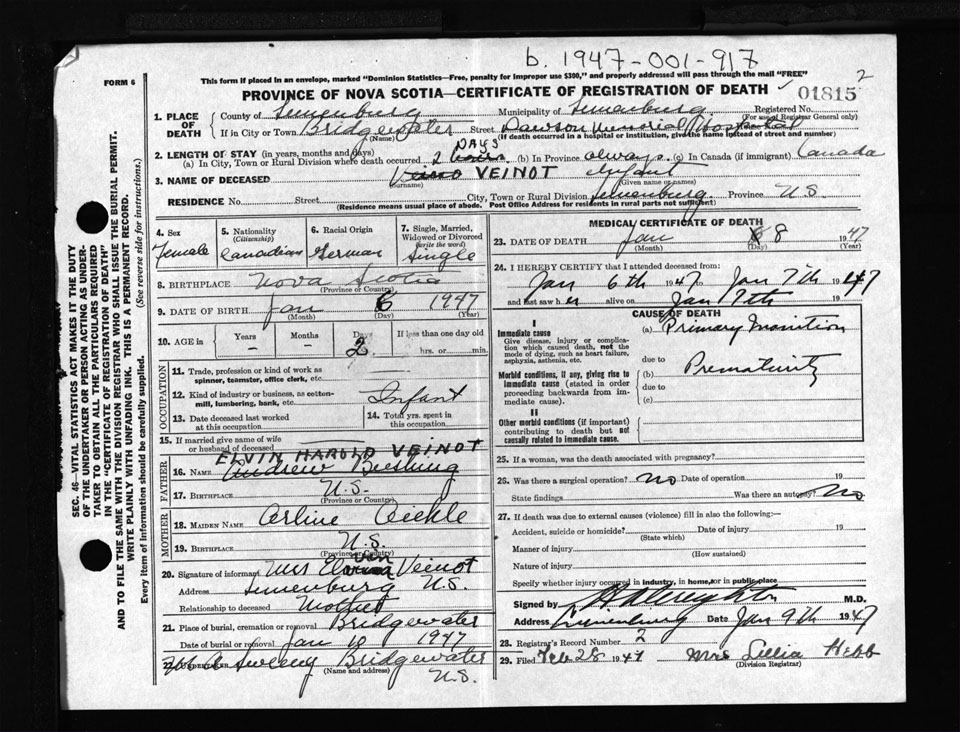 b. 1947-001-917
FORM 6
This form if placed in an envelope, marked "Dominion Statistics—Free, penalty for improper use $300," and properly addressed will pass through the mail "FREE"
2
PROVINCE OF NOVA SCOTIA—CERTIFICATE OF REGISTRATION OF DEATH
01815
1. PLACE OF DEATH
County of Lunenburg Municipality of Lunenburg Registered No.
(For use of Registrar General only)
If in City or Town Bridgewater Street Dawson Memorial Hospital
(Name) (If death occurred in a hospital or institution, give the name instead of street and number)
2. LENGTH OF STAY (in years, months and days)
(a) In City, Town or Rural Division where death occurred 2 DAYS (b) In Province always (c) In Canada (if immigrant) Canada
3. NAME OF DECEASED VEINOT Infant
(Surname) (Given name or names)
RESIDENCE No. Street City, Town or Rural Division Lunenburg Province N.S.
(Residence means usual place of abode. Post Office Address for residents in rural parts not sufficient)
4. Sex
Female
5. Nationality (Citizenship)
Canadian
6. Racial Origin
German
7. Single, Married, Widowed or Divorced (write the word)
Single
8. BIRTHPLACE Nova Scotia
(Province or Country)
9. DATE OF BIRTH Jan 6 1947
(Month) (Day) (Year)
10. AGE in Years Months Days If less than one day
- - 2 hrs. or min.
OCCUPATION
11. Trade, profession or kind of work as spinner, teamster, office clerk, etc.
12. Kind of industry or business, as cotton-mill, lumbering, bank, etc. Infant
13. Date deceased last worked at this occupation
14. Total yrs. spent in this occupation
15. If married give name of wife or husband of deceased
ELVIN HAROLD VEINOT
FATHER
16. NAME Andrew
17. BIRTHPLACE N.S.
(Province or Country)
MOTHER
18. MAIDEN NAME Arline
19. BIRTHPLACE N.S.
(Province or Country)
20. Signature of informant Mrs Elvin Veinot
Address Lunenburg N.S.
Relationship to deceased Mother
21. Place of burial, cremation or removal Bridgewater
Date of burial or removal Jan 10 1947
22. UNDERTAKER Sweeny Bridgewater
(Name and address) N.S.
MEDICAL CERTIFICATE OF DEATH
23. DATE OF DEATH Jan 8 1947
(Month) (Day) (Year)
24. I HEREBY CERTIFY that I attended deceased from:
Jan 6th 1947 to Jan 7th 1947
and last saw her alive on Jan 7th 19
CAUSE OF DEATH
I
Immediate cause
Give disease, injury or complication which caused death, not the mode of dying, such as heart failure, asphyxia, asthenia, etc.
(a) Primary Inanition
due to
Morbid conditions, if any, giving rise to immediate cause (stated in order proceeding backwards from immediate cause).
(b) Prematurity
due to
(c)
II
Other morbid conditions (if important) contributing to death but not causally related to immediate cause.
25. If a woman, was the death associated with pregnancy?
26. Was there a surgical operation? No Date of operation 19
State findings Was there an autopsy? No
27. If death was due to external causes (violence) fill in also the following:—
Accident, suicide or homicide? Date of injury 19
(State which)
Manner of injury
(How sustained)
Nature of injury
Specify whether injury occurred in industry, in home, or in public place
Signed by M.D.
Address Lunenburg Date Jan 9th 1947
28. Registrar's Record Number 2
29. Filed Feb 28 1947 Mrs Lillia Hebb
(Division Registrar)
SEC. 46—VITAL STATISTICS ACT MAKES IT THE DUTY
OF THE UNDERTAKER OR PERSON ACTING AS UNDERTAKER TO OBTAIN ALL THE PARTICULARS REQUIRED
IN THE "CERTIFICATE OF REGISTRATION OF DEATH"
AND TO FILE THE SAME WITH THE DIVISION REGISTRAR WHO SHALL ISSUE THE BURIAL PERMIT.
WRITE PLAINLY WITH UNFADING INK. THIS IS A PERMANENT RECORD.
Every item of information should be carefully supplied. (See reverse side for instructions.)